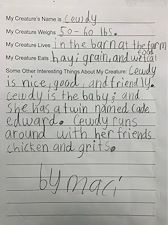 My Creature's Name is Cewdy
My Creature Weighs 50-60 lbs.
My Creature Lives in the barn at the farm
My Creature Eats hay, grain, and
food
Some Other Interesting Things About My Creature: Cewdy
is nice, good, and friendly.
Cewdy is the baby; and
she has a twin named Cade
edward. Cewdy runs
around with her friends
chicken and grits.
by maci